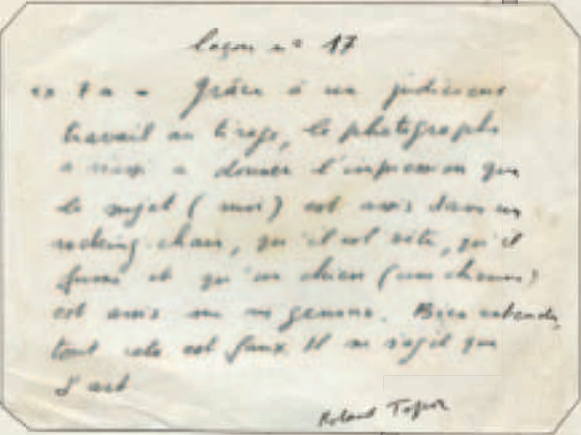 leçon n° 17
Grâce à un judicieux
travail au tirage, le photographe
a réussi à donner l'impression que
le sujet (moi) est assis dans un
rocking-chair, qu'il est , qu'il
fume et qu'un chien (un chien)
est assis sur ses genoux. Bien entendu,
tout cela est faux. Il ne s'agit que
d'art
Roland Topor